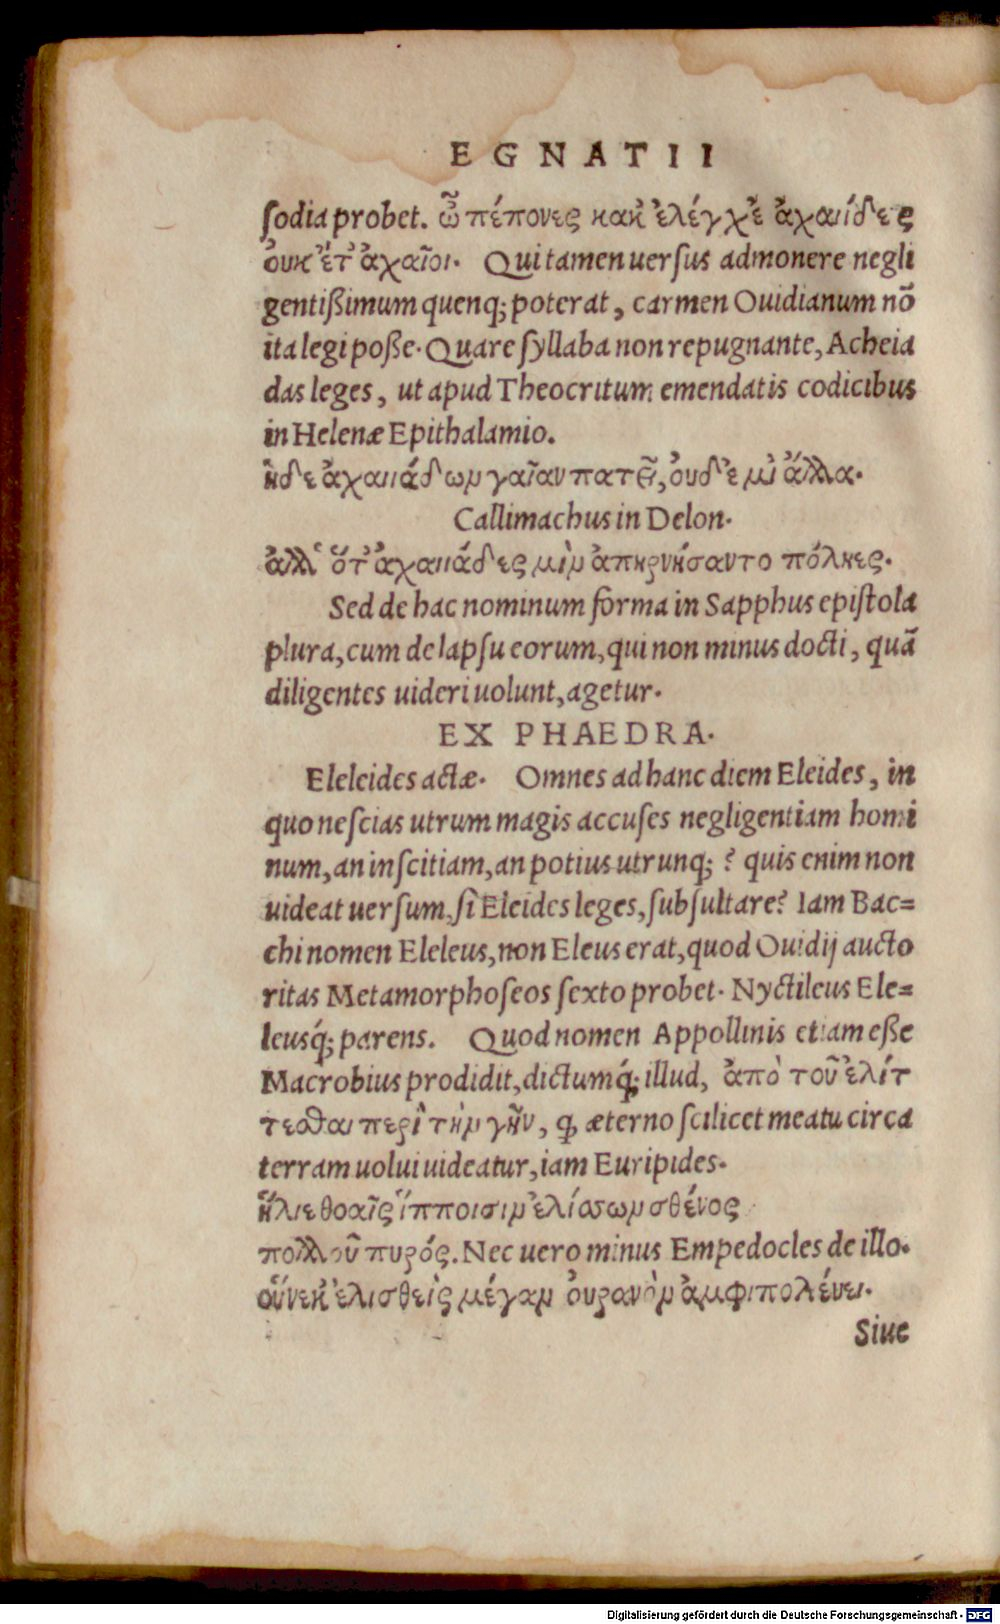 EGNATII
sodia probet. ὦ πέπονες κακ' ἐλέγχε' ἀχαιίδες
ὀυκ ἔτ' ἀχαῖοι. Qui tamen uersus admonere negli
gentißimum quenq; poterat, carmen Ouidianum nõ
ita legi poße. Quare syllaba non repugnante, Acheia
das leges, ut apud Theocritum emendatis codicibus
in Helenæ Epithalamio.
ἠδε ἀχαιιάδων γαῖαν πατεῖ, ὀυδ' ἐμὶ ἄλλα.
Callimachus in Delon.
ἀλλ' ὅτ' ἀχαιιάδες μὶν ἀπηρνήσαντο πόληες.
Sed de hac nominum forma in Sapphus epistola
plura, cum de lapsu eorum, qui non minus docti, quã
diligentes uideri uolunt, agetur.
EX PHAEDRA.
Eleleides actæ. Omnes ad hanc diem Eleides, in
quo nescias utrum magis accuses negligentiam homi
num, an inscitiam, an potius utrunq; ? quis enim non
uideat uersum, si Eleides leges, subsultare? Iam Bac=
chi nomen Eleleus, non Eleus erat, quod Ouidij aucto
ritas Metamorphoseos sexto probet. Nyctileus Ele=
leusq́; parens. Quod nomen Appollinis etiam eße
Macrobius prodidit, dictumq́; illud, ἀπὸ τοῦ ἐλίτ
τεσθαι περὶ τὴν γῆν, ꝙ æterno scilicet meatu circa
terram uolui uideatur, iam Euripides.
ἥλιε θοαῖς ἵπποισιν ἐλίσσων σθένος
πολλοῦ πυρός. Nec uero minus Empedocles de illo.
οὕνεκ' ἐλισθεὶς μέγαν ὀυρανὸν ἀμφιπολέυει.
Siue
Digitalisierung gefördert durch die Deutsche Forschungsgemeinschaft - DFG